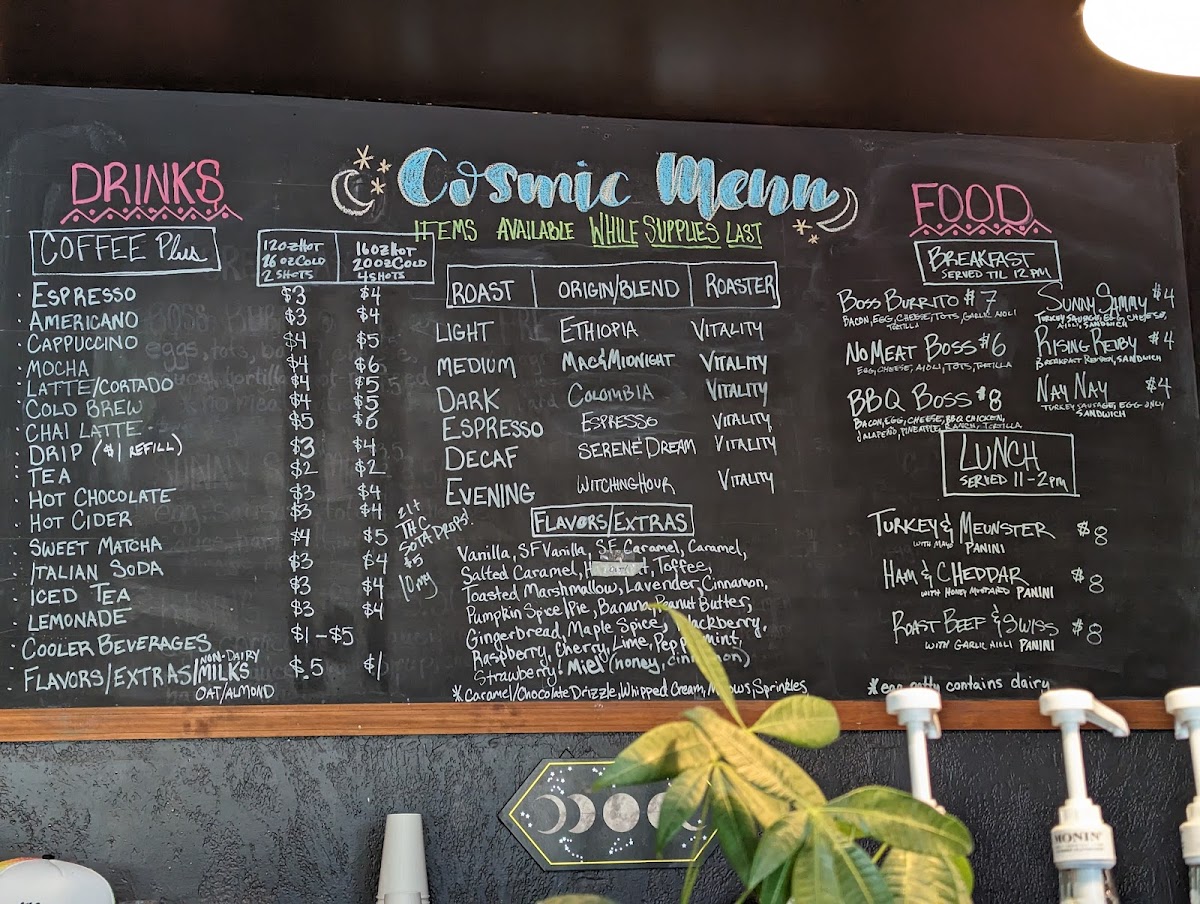 Cosmic Menu
ITEMS AVAILABLE WHILE SUPPLIES LAST
DRINKS
COFFEE Plus
12OZ HOT 16OZ HOT
26 OZ COLD 20OZ COLD
2 SHOTS 4 SHOTS
ESPRESSO $3 $4
AMERICANO $3 $4
CAPPUCCINO $4 $5
MOCHA $4 $6
LATTE/CORTADO $4 $5
COLD BREW $4 $5
CHAI LATTE $5 $6
DRIP ($1 REFILL) $3 $4
TEA $2 $2
HOT CHOCOLATE $3 $4
HOT CIDER $3 $4
SWEET MATCHA $4 $5
ITALIAN SODA $3 $4
ICED TEA $3 $4
LEMONADE $3 $4
COOLER BEVERAGES $1-$5
FLAVORS/EXTRAS/NON-DAIRY MILKS $.5 $1
OAT/ALMOND
21+
THC
SODA DROPS!
$5
10mg
ROAST ORIGIN/BLEND ROASTER
LIGHT ETHIOPIA VITALITY
MEDIUM MAC&MIDNIGHT VITALITY
DARK COLOMBIA VITALITY
ESPRESSO ESPRESSO VITALITY
DECAF SERENE DREAM VITALITY
EVENING WITCHNG HOUR VITALITY
FLAVORS/EXTRAS
Vanilla, SF Vanilla, SF Caramel, Caramel,
Salted Caramel, Toffee,
Toasted Marshmallow, Lavender, Cinnamon,
Pumpkin Spice/Pie, Banana, Peanut Butter,
Gingerbread, Maple Spice, Blackberry,
Raspberry, Cherry, Lime, Peppermint,
Strawberry! Miel (honey, cinnamon)
*Caramel/Chocolate Drizzle, Whipped Cream, Mallows Sprinkles
FOOD
BREAKFAST
SERVED TIL 12PM
BOSS BURRITO $7
BACON, EGG, CHEESE, TOTS, GARLIC AIOLI
TORTILLA
NO MEAT BOSS $6
EGG, CHEESE, AIOLI, TOTS, TORTILLA
BBQ BOSS $8
BACON, EGG, CHEESE, BBQ CHICKEN,
JALAPEÑO, PINEAPPLE, RANCH, TORTILLA
SUNNY SAMMY $4
TURKEY SAUSAGE, EGG, CHEESE,
AIOLI, SANDWICH
RISING REUBY $4
BREAKFAST REUBEN, SANDWICH
NAY NAY $4
TURKEY SAUSAGE, EGG ONLY
SANDWICH
LUNCH
SERVED 11-2pm
TURKEY & MEUNSTER $8
WITH MAYO PANINI
HAM & CHEDDAR $8
WITH HONEY MUSTARD PANINI
ROAST BEEF & SWISS $8
WITH GARLIC AIOLI PANINI
*egg patty contains dairy
MONIN